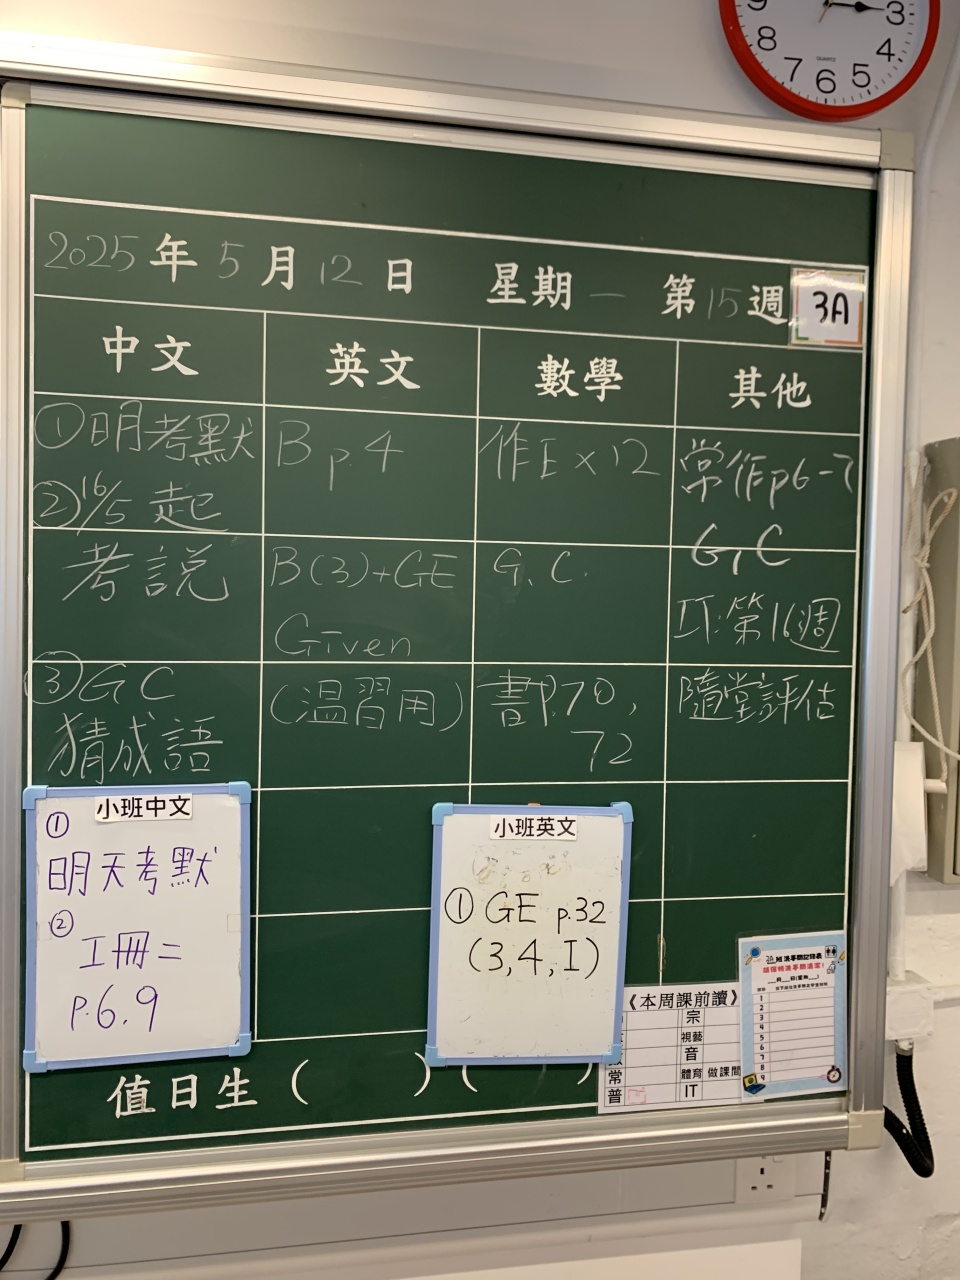 9 3
8 4
7 6 5
QUARTZ
2025 年 5 月 12 日 星期 一 第 15 週 3A
中文 英文 數學 其他
①明考默
②16/5 起
考說
③GC
猜成語
B p.4
B(3)+GE
Given
(溫習用)
作E×12
G.C.
書P.70,
72
常作p6-7
G.C
IT:第16週
隨堂評估
小班中文
①
明天考默
②
工冊二
p.6,9
小班英文
① GE p.32
(3,4,I)
《本周課前讀》
宗
視藝
音
常 體育 做課間
普 IT
1
2
3
4
5
6
7
8
9
值日生 ( ) ( )